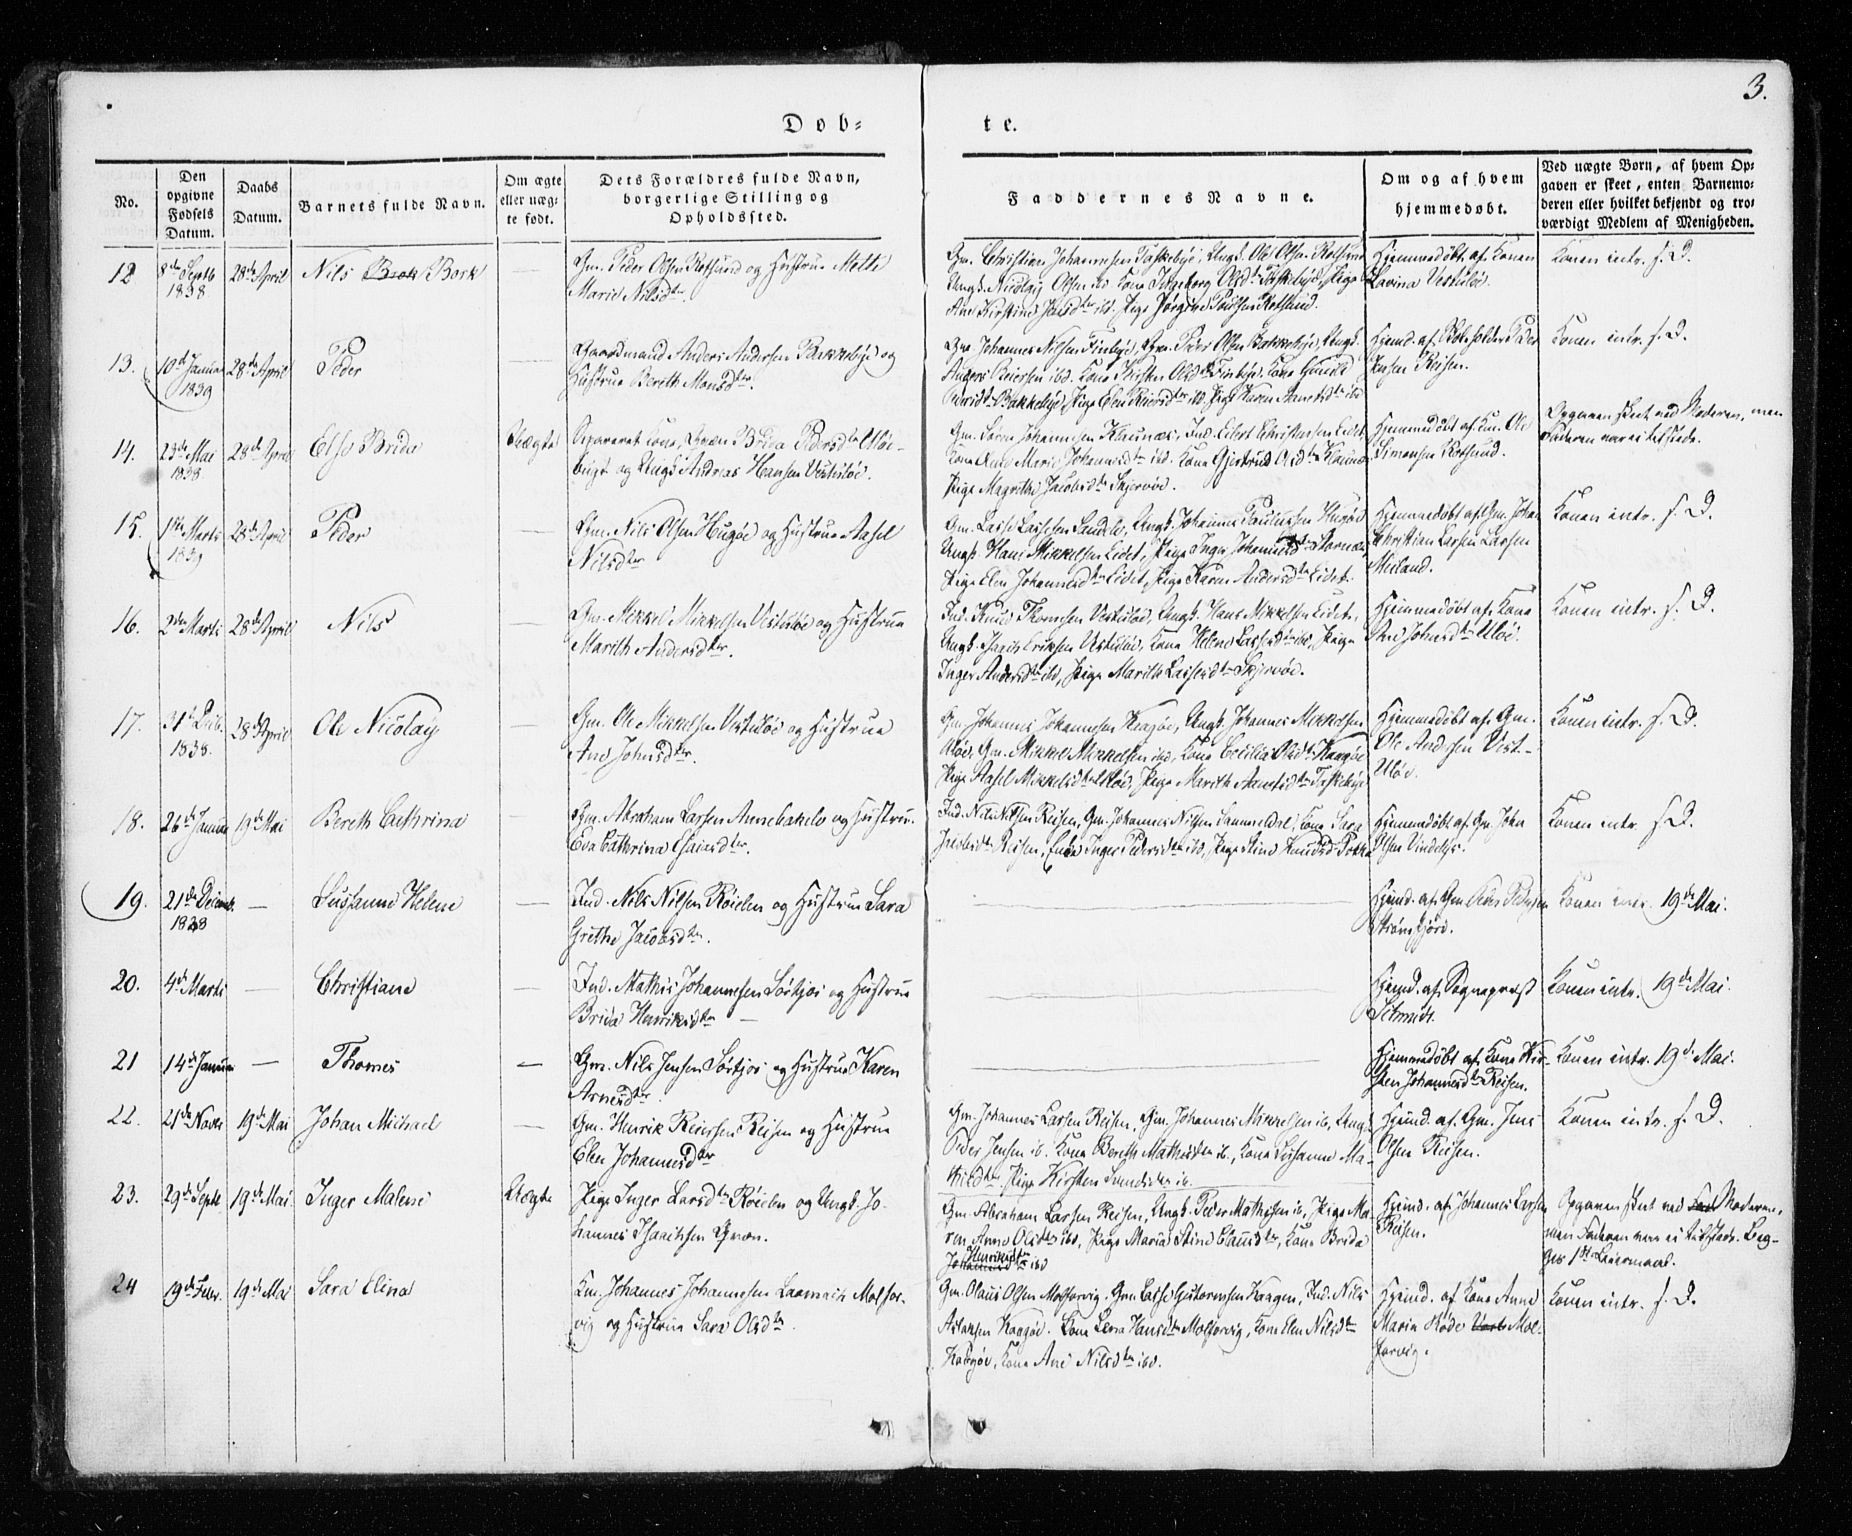 3.
Døb=
te.
No.
Den
opgivne
Fødsels
Datum.
Daabs
Datum.
Barnets fulde Navn.
Om ægte
eller uæg=
te født.
Dets Forældres fulde Navn,
borgerlige Stilling og
Opholdssted.
Faddernes Navne.
Om og af hvem
hjemmedøbt.
Ved uægte Børn, af hvem Op=
gaven er skeet, enten Barnemo=
deren eller hvilket bekjendt og tro=
værdigt Medlem af Menigheden.
12
8de Septb
1838
28de April
Nils Brok Bork
Gm. Peder Olsen Rotsund og Hustrue Mette
Marie Nilsdtr.
Gm. Christian Johannesen Taskebye, Ungk. Ole Olsen Rotsund
Ungk. Nicolay Olsen ib. Kone Ingeborg Olsdtr Taskebye, Pige
Ane Kirstine Jensdtr ibd. Pige Jørgine Poulsen Rotsund.
Hjemmedøbt af Konen
Lavina Vestuløe.
Konen intr. s. D.
13.
10d Januar
1839
28de April
Peder
Gaardmand Anders Andersen Bakkebye og
Hustrue Berith Monsdtr.
Gm Johannes Nilsen Finbye, Gm. Peder Olsen Bakkebye, Ungk.
Anders Reiersen ibd. Kone Kirsten Olsdtr Finbye, Kone
Bakkebye, Pige Elen Reiersdtr ibd. Pige Karen ibd
Hjemd. af Peder
Jensen Reisen.
Konen intr. s. D.
14.
23de Mai
1838
28de April
Else Brida
Uægte
Separeret Kone, Qvæn Brida Pedersdtr Uløe-
bugt og Ungk. Andreas Hansen Vestuløe.
Gm. Søren Johannesen Klaunæs, Ind. Eilert Christensen Eidet
Kone Ane Marie Johannesdtr ibd. Kone Gjertrud Olsdtr Klaunæs
Pige Magrethe Jacobsdtr Skjervøe.
Hjemmedøbt af Ole
Simonsen Rotsund.
Opgaven skeet ved Moderen, men
Faderen var ei tilstede.
15.
1ste Marts
1839
28de April
Peder
Gm. Nils Olsen Hugøe og Hustrue Aasel
Nilsdtr
Gm. Lasse Lassesen, Ungk. Johannes Hugøe
Ungk. Hans Mikkelsen Eidet, Pige Inger
Pige Elen Johannesdtr Eidet, Pige Karen Andersdtr Eidet.
Hjemmedøbt af Gm. Johan
Christian Larsen Larsen
Meiland.
Konen intr. s. D.
16.
2den Marts
28de April
Nils
Gm. Mikkel Mikkelsen Vestuløe og Hustrue
Marith Andersdtr.
Ind. Knud Thomsen Vestuløe, Ungk. Hans Mikkelsen Eidet,
Ungk. Eriksen Vestuløe, Kone Helene Lassesdtr ibd, Pige
Inger Andersdtr ibd, Pige Marith Lassesdtr Skjervøe.
Hjemmedøbt af Kone
Ane Johnsdtr Uløe.
Konen intr. s. D.
17.
31te Decb.
1838.
28de April
Ole Nicolay
Gm. Ole Mikkelsen Vestuløe og Hustrue
Ane Johnsdtr.
Gm. Johannes Johannesen Kaagøe, Ungk. Johannes Mikkelsen
Uløe, Gm. Mikkel Mikkelsen ibd, Kone Cecilia Olsdtr Kaagøe
Pige Aasel Mikkelsdtr Uløe, Pige Marith Taskebye
Hjemmedøbt af Gm.
Ole Andersen Vest-
Uløe.
Konen intr. s. D.
18.
26de Januar
19de Mai
Bereth Cathrina
Gm. Abraham Larsen og Hustrue
Eva Cathrina Esaiasdtr.
Ind. Nils Nilsen Reisen, Gm. Johannes Nilsen, Kone Sara
Jacobsdtr Reisen, Enke Inger Pedersdtr ibd, Pige Stine Knudsd.
Hjemmedøbt af Gm John
Olsen
Konen intr. s. D.
19.
21de Decemb.
1838
Susanne Helene
Ind. Nils Nilsen Røielen og Hustrue Sara
Grethe Jacobsdtr.
Hjemd. af Gm Peder Pedersen
Strømfjord.
Konen intr. 19de Mai.
20.
4de Marts
Christiane
Ind. Mathis Johannesen Sørkjos og Hustrue
Brida Henriksdtr
Hjemd. af Sognepræst
Schmidt.
Konen intr. 19de Mai.
21
14de Januar
Thomas
Gm. Nils Jensen Sørkjos og Hustrue Karen
Arnesdtr.
Hjemmedøbt af Kone Kir-
sten Johannesdtr Reisen.
Konen intr. 19d. Mai.
22.
21de Novbr
19de Mai
Johan Michael
Gm. Henrik Reiersen Reisen og Hustrue
Elen Johannesdtr
Gm. Johannes Larsen Reisen, Gm. Johannes Mikkelsen ib, Ungk.
Peder Jensen ib. Kone Bereth Mathisdtr ib., Kone Susanne Ma-
thisdtr, Pige Kirsten ib.
Hjemd. af Gm. Jens
Olsen Reisen.
Konen intr. s. D.
23.
29de Septb
19de Mai
Inger Malene
Uægte
Pige Inger Larsdtr Røielen og Ungk. Jo-
hannes Isaachsen Qvæn.
Gm. Abraham Larsen Reisen, Ungk. Peder Mathisen ib, Pige Ma-
ren Anne Olsdtr ibd, Pige Maria Stine Clausdtr, Kone Brida
Henriksdtr
Johannesd ibd
Hjemd. af Johannes Larsen
Reisen.
Opgaven skeet ved Moderen,
men Faderen var ei tilstede. Beg-
ges 1ste Leiermaal.
24
19de Febr.
19de Mai
Sara Elina
Gm. Johannes Johannesen Malsor-
vig og Hustrue Sara Olsdtr.
Gm. Olaus Olsen Molsorvig, Gm Lasse Guttormsen Kaagen, Ind. Nils
Aslaksen Kaagøe. Kone Lena Hansdtr Molsorvig, Kone Elen Nilsdtr
Kaagøe, Kone Ane Nilsdtr ibd.
Hjemd. af Kone Anne
Maria Rode Mol-
sorvig.
Konen intr. s. D.